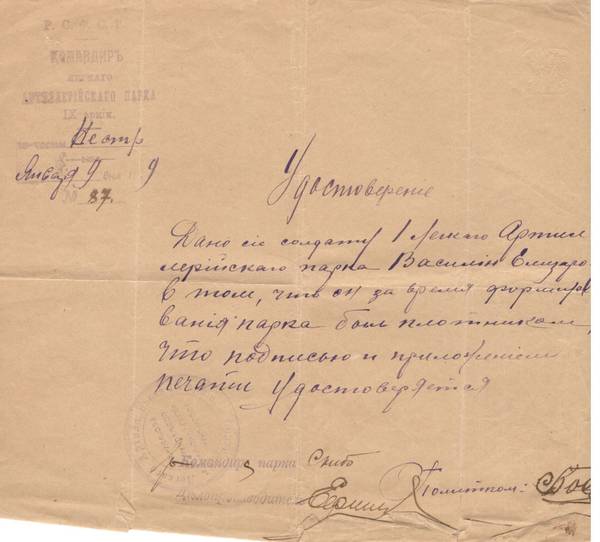 Р. С. Ф. С. Р.
КОМАНДИРЪ
ЛЕГКАГО
АРТИЛЛЕРІЙСКАГО ПАРКА
IX арміи.
по части
Января 9 дня 9
№ 87.
Удостоверение
Дано сіе солдату 1 легкаго Артил
лерійскаго парка Василію Елизаро
в том, что он за время формиро
ванія парка был плотником,
что подписью и приложеніем
печати удостоверяется
Командир парка
Делопроизводитель
Политком: